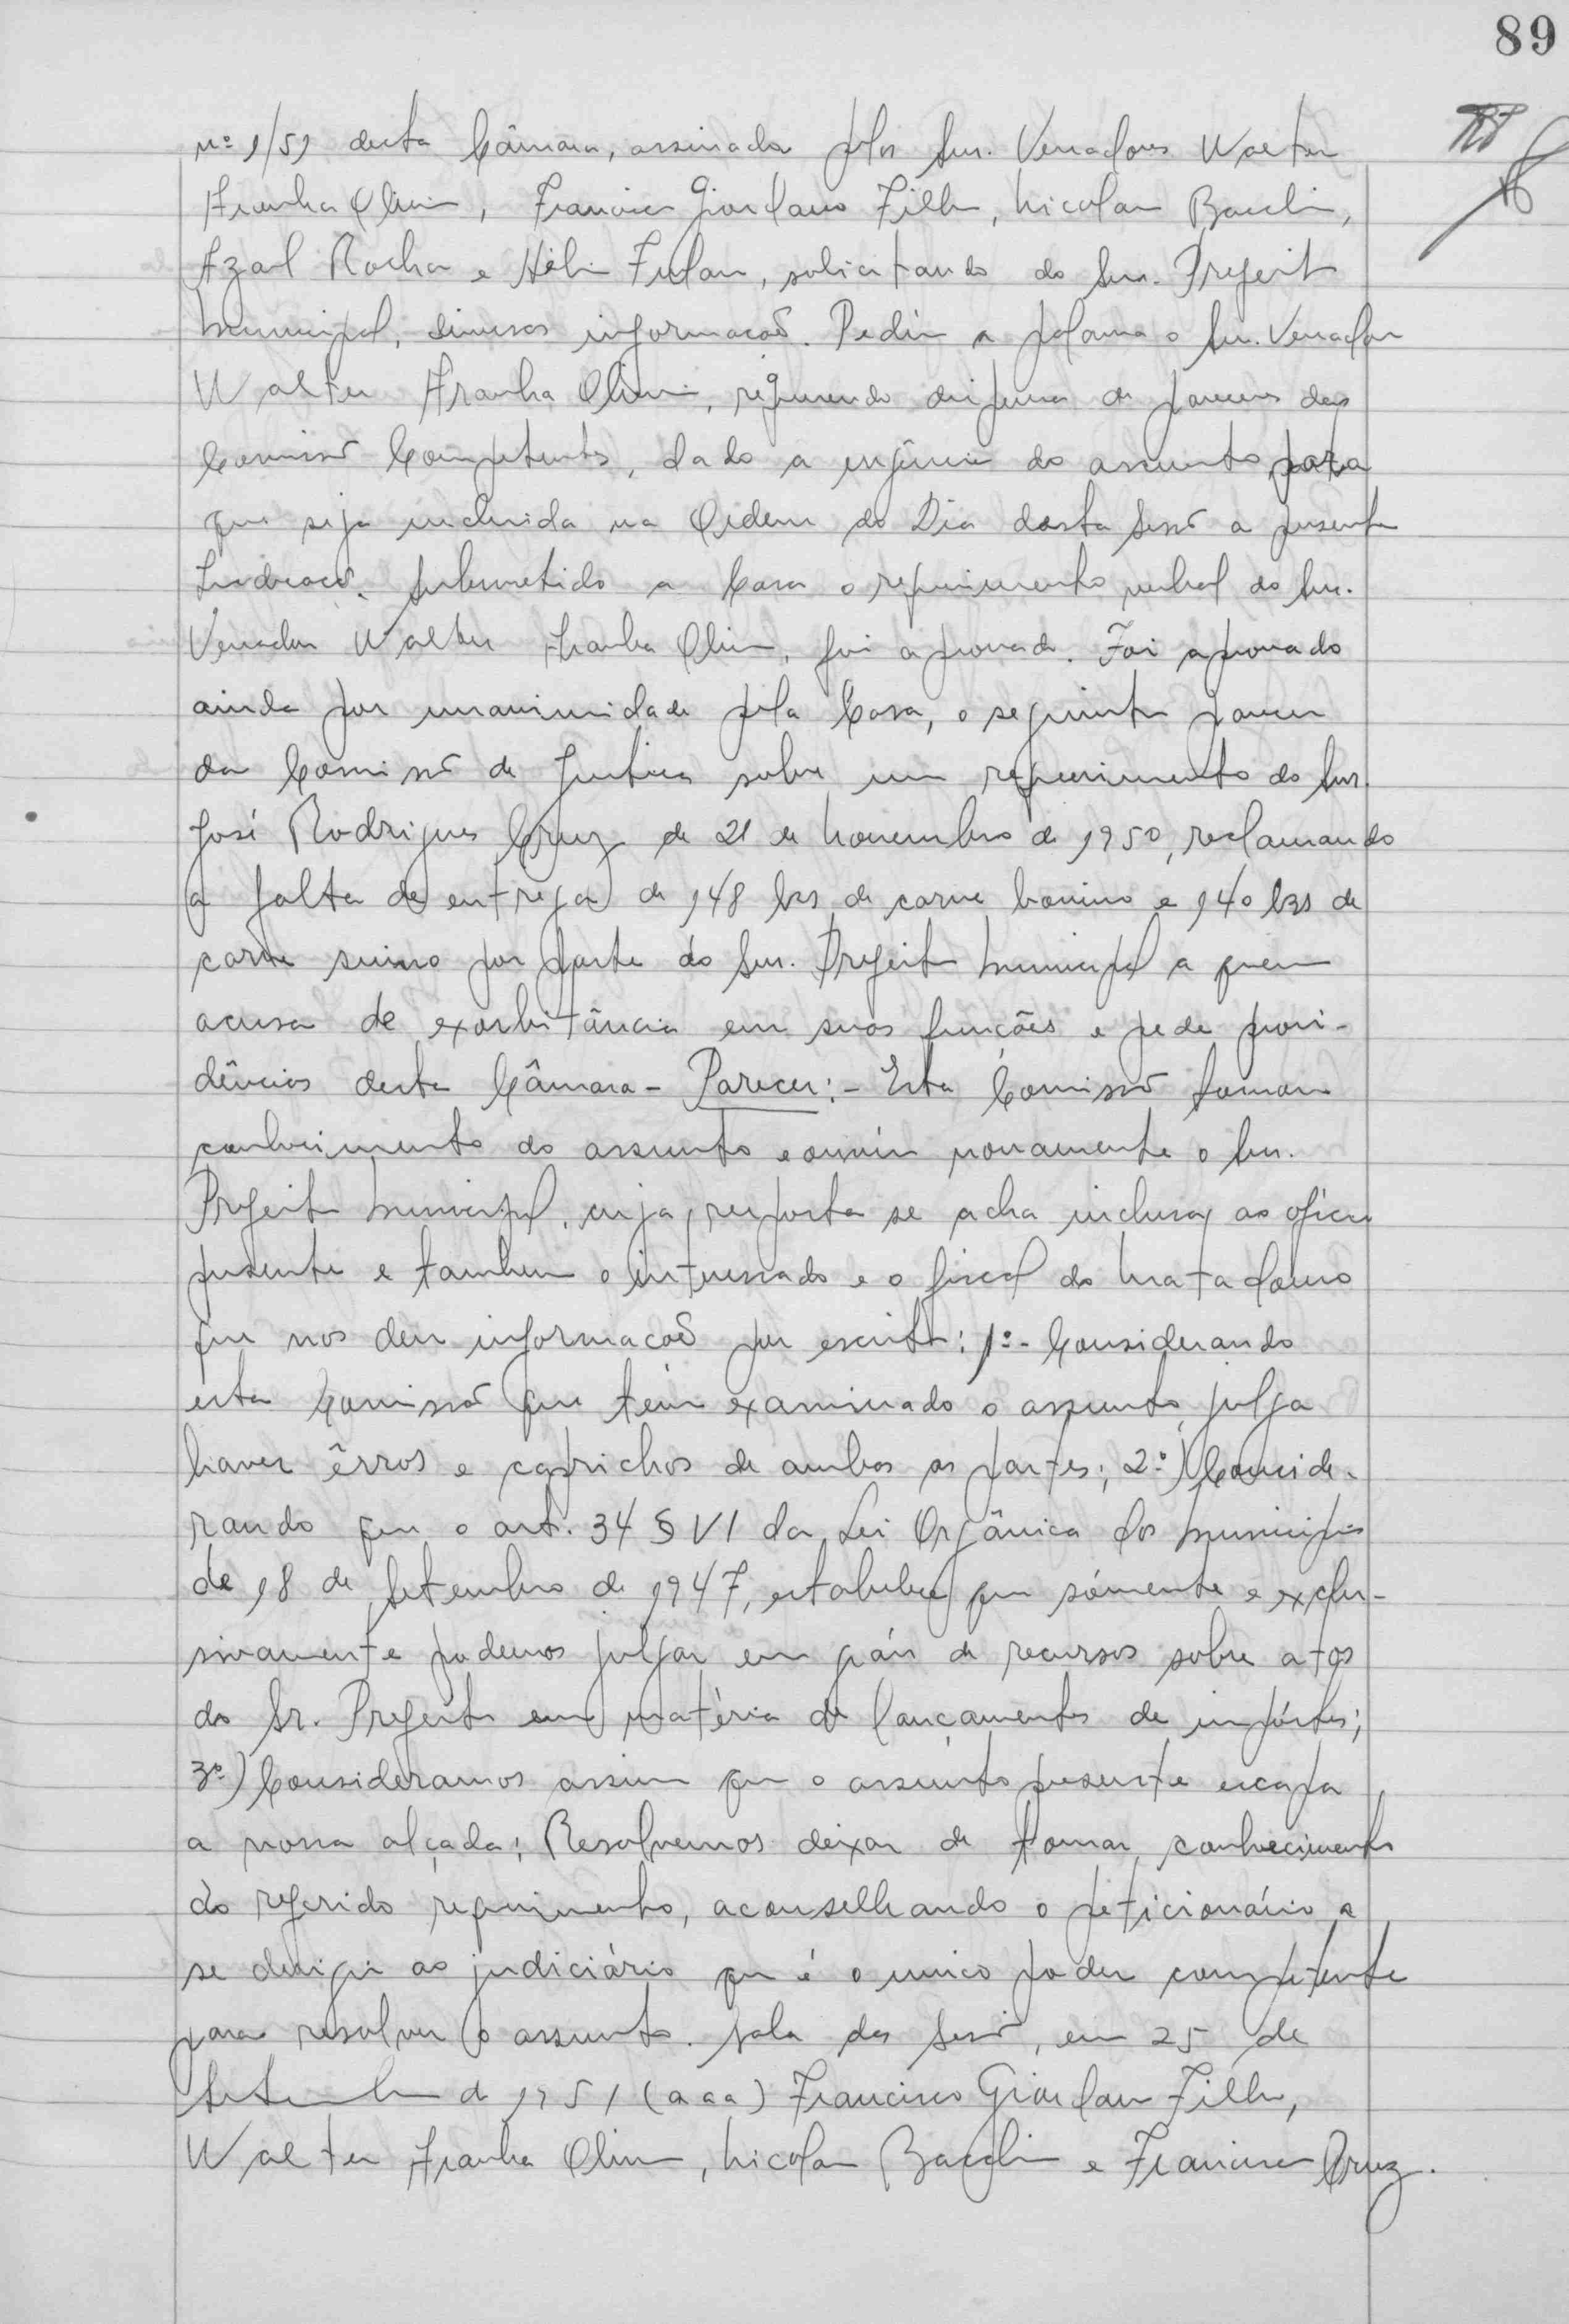 89
nº 1/51 desta Câmara, assinada pelos Snrs. Vereadores Walter
Aranha Olivi, Francisco Giordano Filho, Nicolau Bacchi,
Azael Rocha e Hélio Fulan, solicitando do Snr. Prefeito
Municipal, diversas informações. Pediu a palavra o Snr. Vereador
Walter Aranha Olivi, requerendo dispensa de pareceres das
Comissões Competentes, dado a urgência do assunto para
que seja incluida na Ordem do Dia desta Sessão a presente
Indicação. Submetido a Casa o requerimento verbal do Snr.
Vereador Walter Aranha Olivi, foi aprovado. Foi aprovado
ainda por unanimidade pela Casa, o seguinte parecer
da Comissão de Justiça sobre um requerimento do Snr.
José Rodrigues Cruz de 21 de Novembro de 1950, reclamando
a falta de entrega de 148 kgs de carne bovino e 140 kgs de
carne suino por parte do Snr. Prefeito Municipal a quem
acusa de exorbitância em suas funções e pede provi-
dências desta Câmara - Parecer: - Esta Comissão tomou
conhecimento do assunto e ouviu novamente o Snr.
Prefeito Municipal, cuja resposta se acha inclusa ao ofício
presente e tambem o interessado e o fiscal do Matadouro
que nos deu informações por escrito: 1º - Considerando
esta Comissão que tem examinado o assunto, julga
haver êrros e caprichos de ambas as partes; 2º) Conside-
rando que o art. 34 § VI da Lei Orgânica dos Municipios
de 18 de Setembro de 1947, estabelece que sómente e exclu-
sivamente podemos julgar em gráu de recursos sobre atos
do Sr. Prefeito em matéria de lançamentos de impóstos;
3º) Consideramos assim que o assunto presente escapa
a nossa alçada; Resolvemos deixar de tomar conhecimento
do referido requerimento, aconselhando o peticionário a
se dirigir ao judiciário que é o unico poder competente
para resolver o assunto. Sala das Sessões, em 25 de
Setembro de 1951 (aaa) Francisco Giordano Filho,
Walter Aranha Olivi, Nicolau Bacchi e Francisco Cruz.